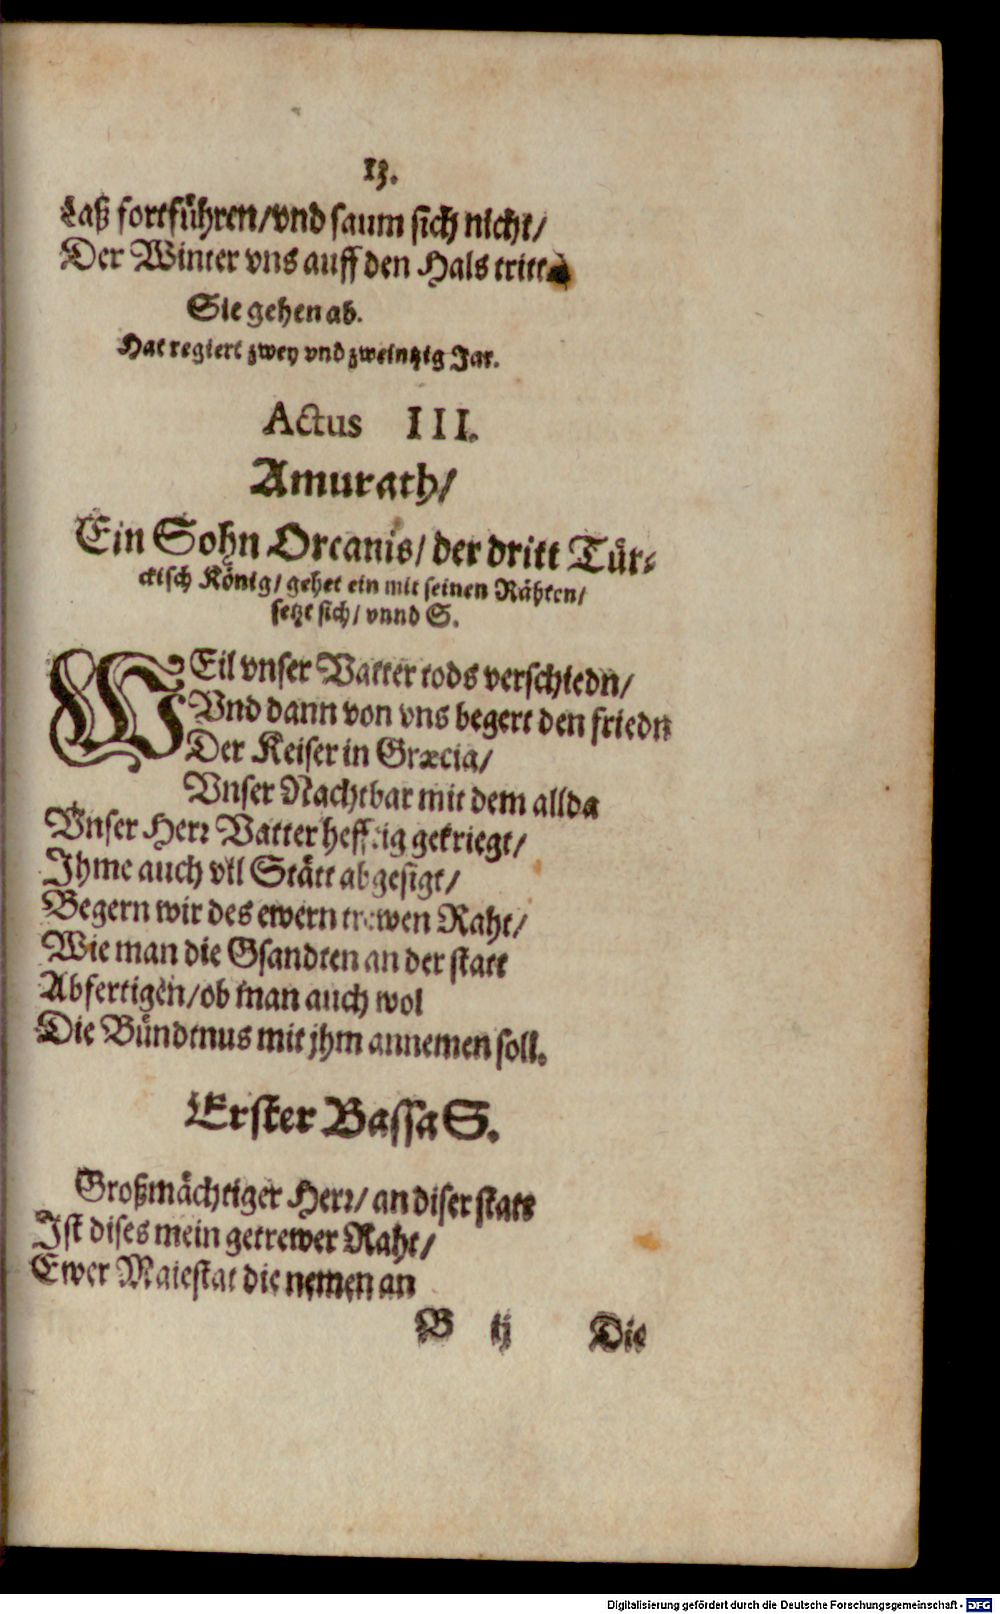 13.
Laß fortführen/vnd saum sich nicht/
Der Winter vns auff den Hals tritt.
Sie gehen ab.
Hat regiert zwey vnd zweintzig Jar.
Actus III.
Amurath/
Ein Sohn Orcanis/ der dritt Tür-
ckisch König/ gehet ein mit seinen Rähten/
setzt sich/ vnnd S.
WEil vnser Vatter tods verschiedn/
Vnd dann von vns begert den friedn
Der Keiser in Græcia/
Vnser Nachtbar mit dem allda
Vnser Herr Vatter hefftig gekriegt/
Ihme auch vil Stätt abgesigt/
Begern wir des ewern trewen Raht/
Wie man die Gsandten an der statt
Abfertigen/ob man auch wol
Die Bündtnus mit jhm annemen soll.
Erster Bassa S.
Großmächtiger Herr/ an diser statt
Ist dises mein getrewer Raht/
Ewer Maiestat die nemen an
B ij Die
Digitalisierung gefördert durch die Deutsche Forschungsgemeinschaft - DFG